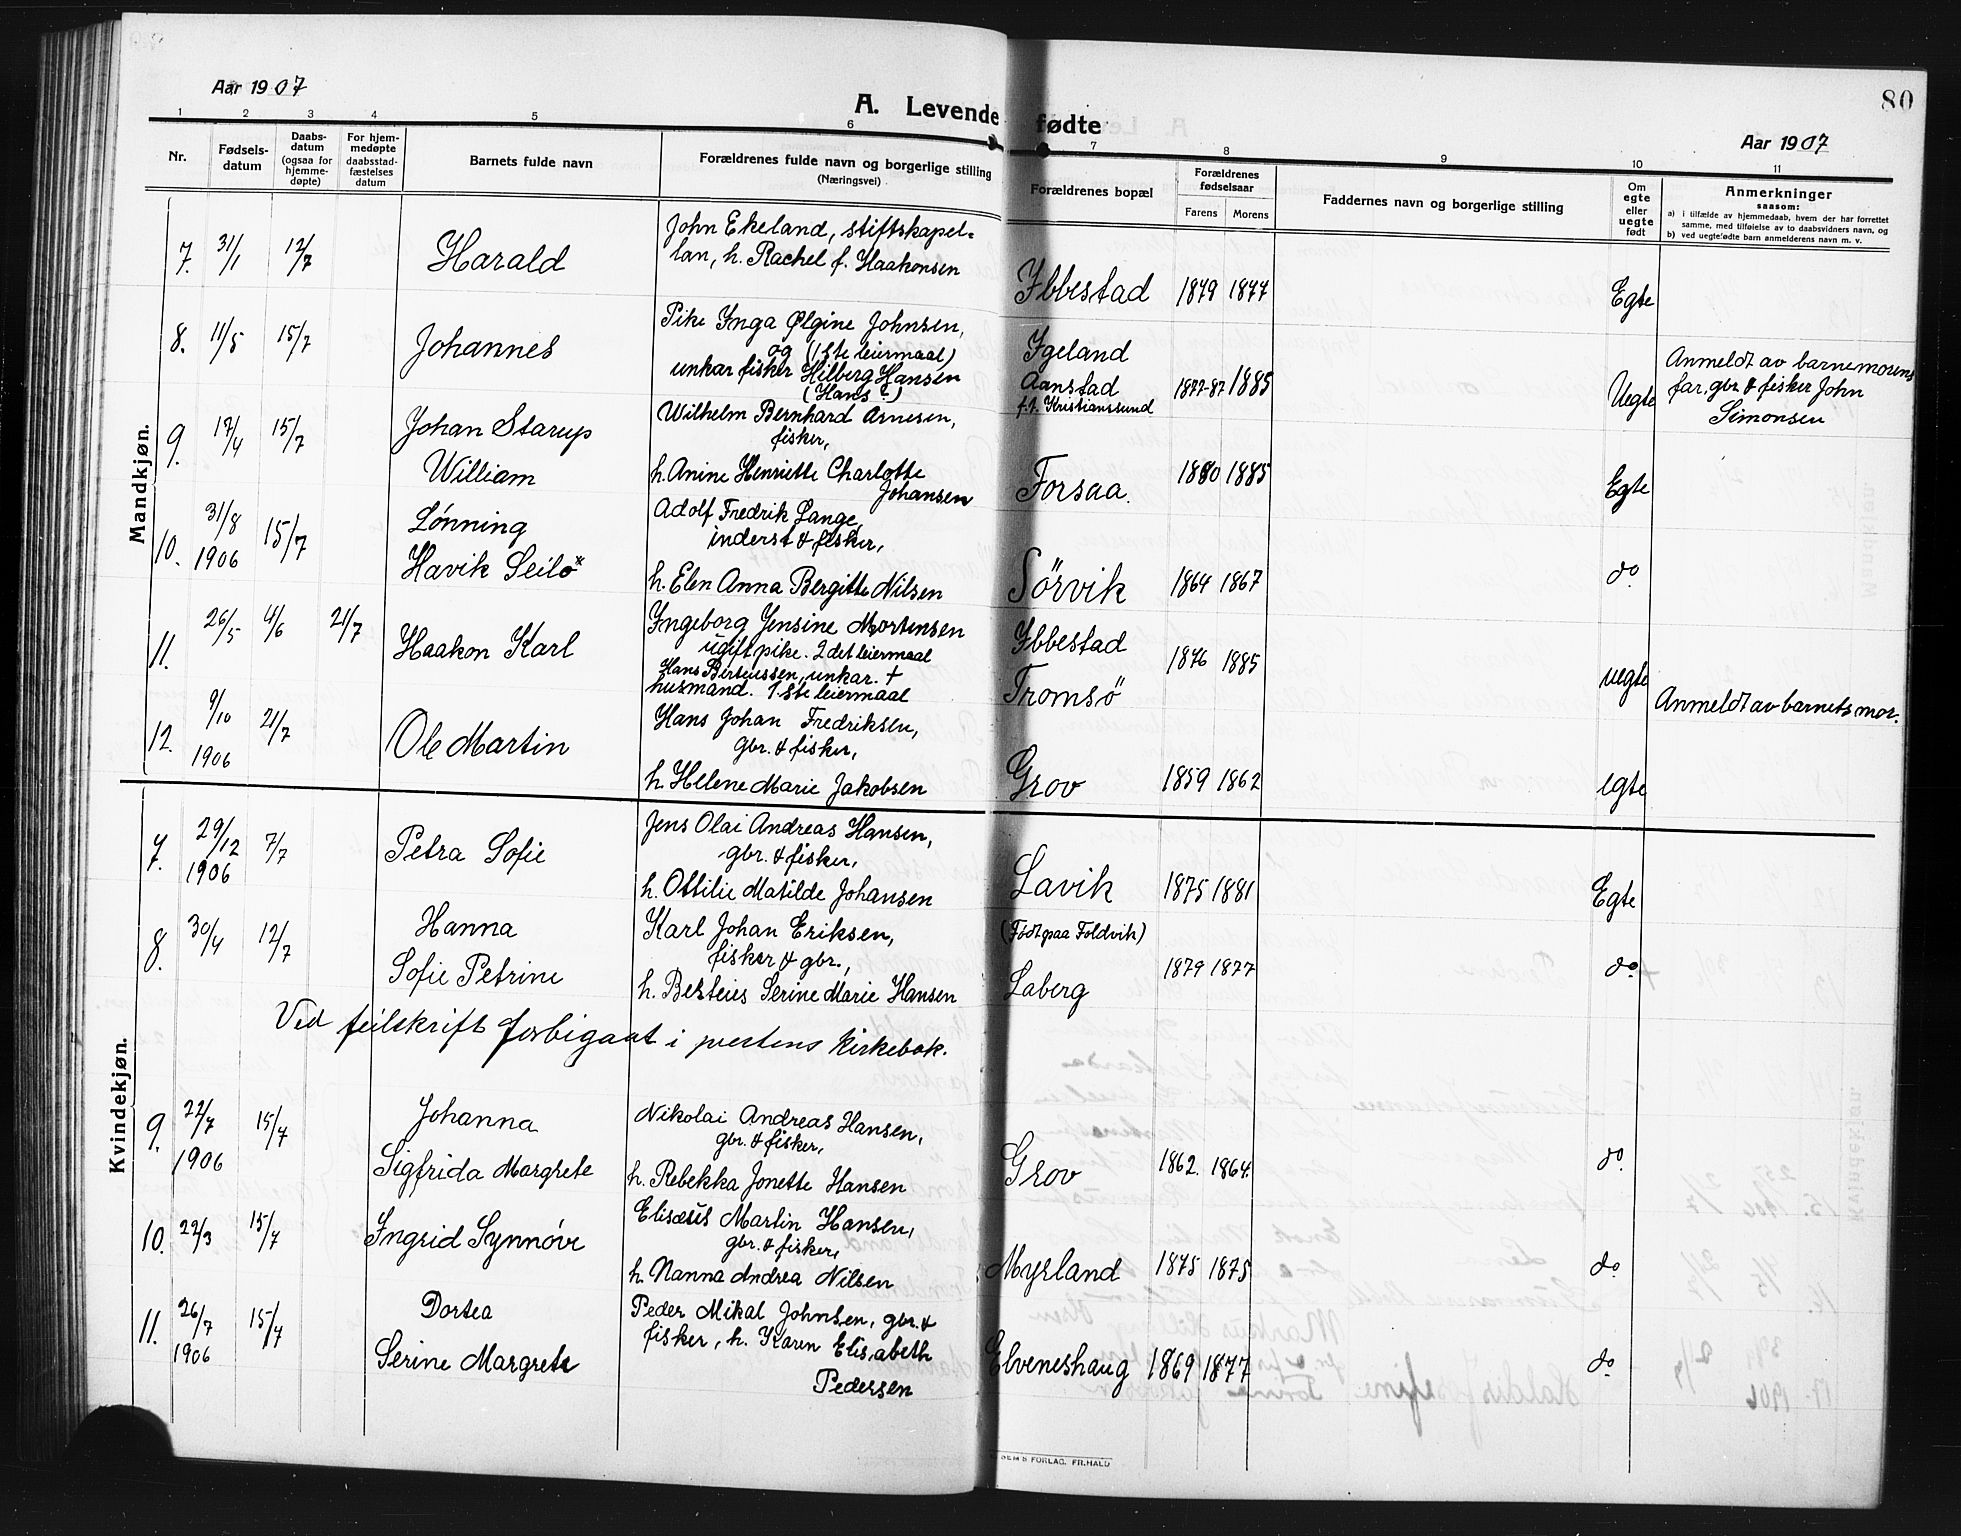 Aar 1907
A. Levende fødte
Aar 1907
80
1 2 3 4 5 6 7 8 9 10 11
Nr.
Fødsels-
datum
Daabs-
datum
(ogsaa for
hjemme-
døpte)
For hjem-
medøpte
daabsstad-
fæstelses
datum
Barnets fulde navn
Forældrenes fulde navn og borgerlige stilling
(Næringsvei)
Forældrenes bopæl
Forældrenes
fødselsaar
Farens Morens
Faddernes navn og borgerlige stilling
Om
egte
eller
uegte
født
Anmerkninger
saasom:
a) i tilfælde av hjemmedaab, hvem der har forrettet
samme, med tilføielse av to daabsvidners navn, og
b) ved uegtefødte barn anmelderens navn m. v.
Mandkjøn.
7. 31/1 12/7 Harald
John Ekeland, stiftskapel-
lan, h. Rachel f. Haakonsen
Ibbestad 1879 1877 Egte
8. 11/5 15/7 Johannes
Pike Inga Ølgine Johnsen,
og (1ste leiermaal)
unkar fisker Hilberg Hansen
(Hans?)
Igeland
Aanstad
f.t. Kristianssund
1877-87 1885 Uegte
Anmeldt av barnemorens
far, gbr. & fisker John
Simonsen
9. 17/4 15/7 Johan Starup
William
Wilhelm Bernhard Arnesen,
fisker,
h. Anine Henriette Charlotte
Johansen
Forsaa. 1880 1885 Egte
10. 31/8
1906 15/7 Lønning
Havik Seilo*
Adolf Fredrik Lange,
inderst & fisker,
h. Elen Anna Bergitte Nilsen
Sörvik 1864 1867 do.
11. 26/5 4/6 21/7 Haakon Karl
Ingeborg Jensine Mortensen
ugift pike. 2det leiermaal
Hans Berteussen, unkar. +
husmand. 1ste leiermaal
Ibbestad
Tromsø
1876 1885 uegte
Anmeldt av barnets mor.
12. 9/10
1906 21/7 Ole Martin
Hans Johan Fredriksen,
gbr. & fisker,
h. Helene Marie Jakobsen
Grov 1859 1862 egte
Kvindekjøn.
7. 29/12
1906 7/7 Petra Sofie
Jens Olai Andreas Hansen,
gbr. & fisker,
h. Ottilie Matilde Johansen
Lavik 1875 1881 Egte
8. 30/4 12/7 Hanna
Sofie Petrine
Karl Johan Eriksen,
fisker & gbr.,
h. Berteies Serine Marie Hansen
(Født paa Foldvik)
Laberg 1879 1877 do.
Ved feilskrift forbigaat i prestens kirkebok.
9. 22/7
1906 15/7 Johanna
Sigfrida Margrete
Nikolai Andreas Hansen,
gbr. & fisker,
h. Rebekka Jonette Hansen
Grov 1862. 1864. do.
10. 22/3 15/7 Ingrid Synnöve
Elisæus Martin Hansen,
gbr. & fisker,
h. Nanna Andrea Nilsen
Myrland 1875 1875 do.
11. 26/7
1906 15/7 Dortea
Serine Margrete
Peder Mikal Johnsen, gbr. &
fisker, h. Karen Elisabeth
Pedersen
Elveneshaug 1869 1877 do.
FORLAG, FR.HALD